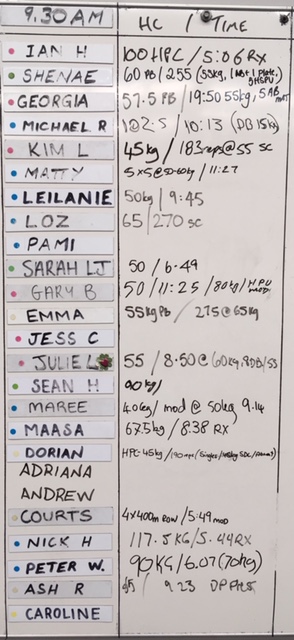 9.30 AM HC / TIME
IAN H 100 HPC / 5:06 RX
SHENAE 60 PB / 255 (55kg, 1 Abmat 1 Plate, SHSPU)
GEORGIA 57.5 PB / 19:50 55kg, 5 AB MAT
MICHAEL R 102.5 / 10:13 (DB 15kg)
KIM L 45kg / 183reps@55 SC
MATTY 5x5@50-60kg / 11:27
LEILANIE 50kg / 9:45
LOZ 65 / 270 SC
PAMI
SARAH LJ 50 / 6.49
GARY B 50 / 11:25 / 80kg / HPU
EMMA 55kg PB / 275@65kg
JESS C
JULIE L 55 / 8.50@ (60kg,
SEAN H 90kg /
MAREE 40kg / mod @ 50kg 9.14
MAASA 67.5kg / 8:38 RX
DORIAN HPC 45kg / 190reps (Singles /
ADRIANA
ANDREW
COURTS 4x400m Row / 5:49 mod
NICK H 117.5KG / 5.44RX
PETER W. 90KG / 6.07 (70kg)
ASH R 9.23
CAROLINE